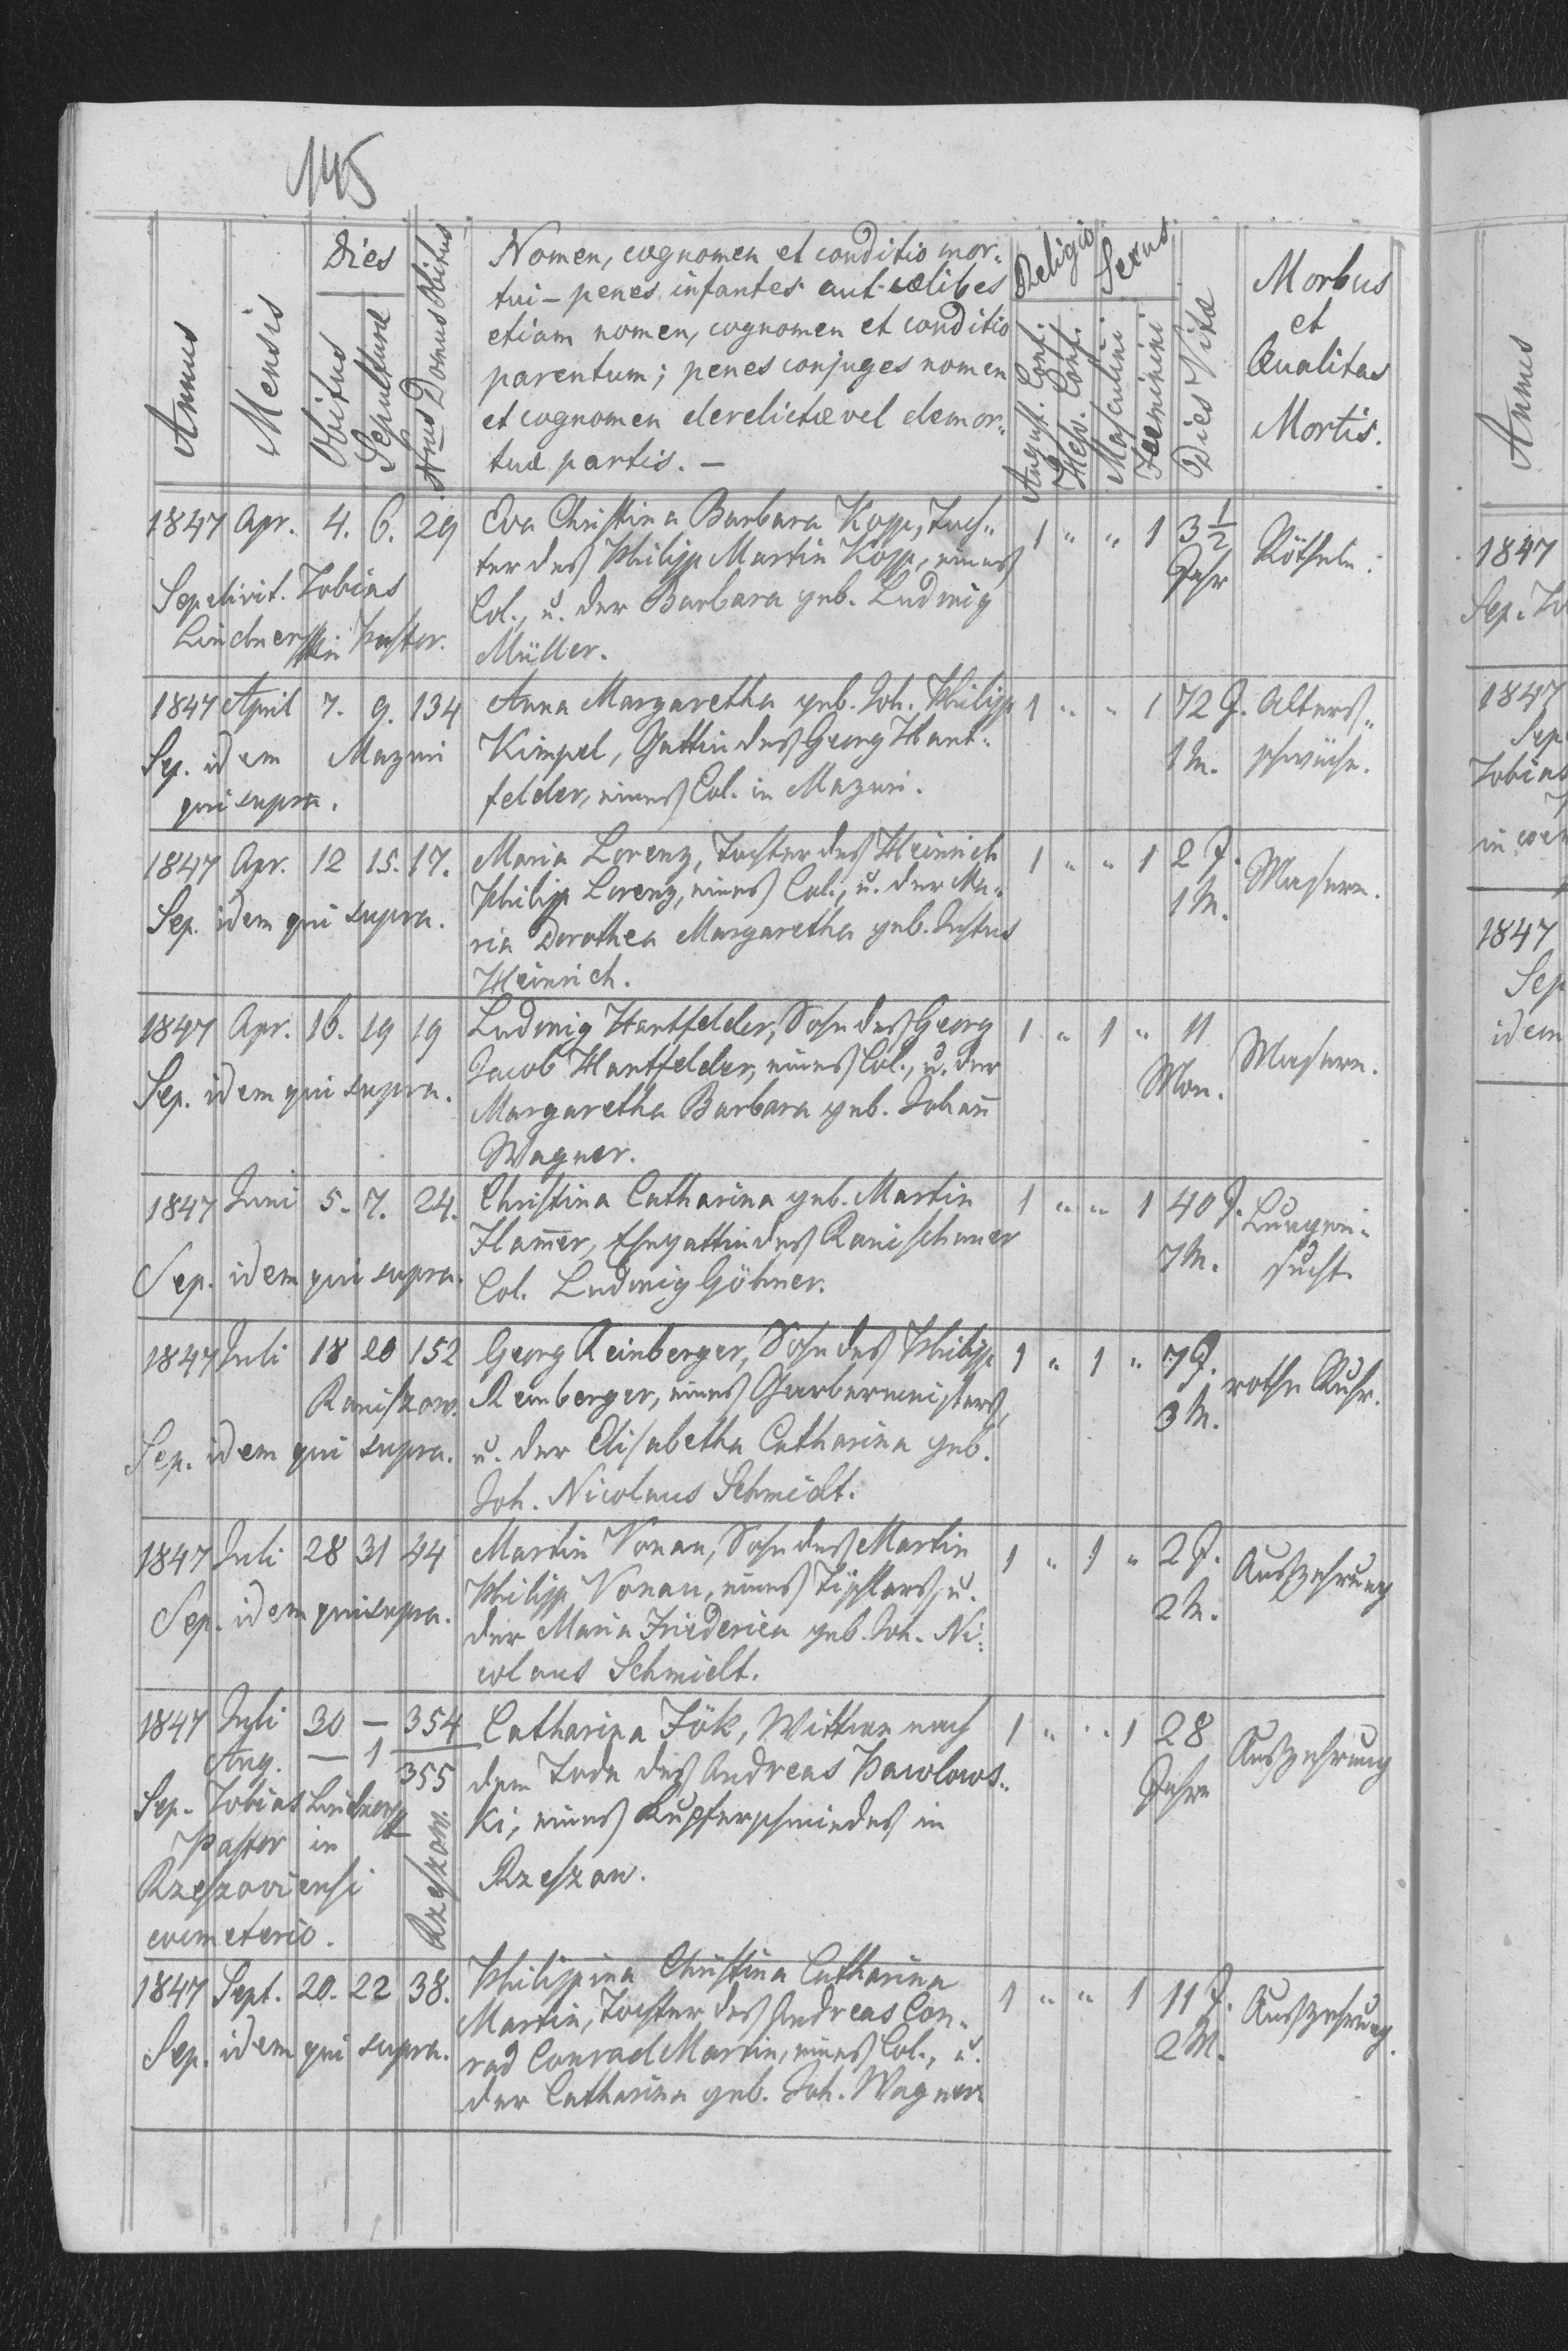 145
Annus
Mensis
Dies
Obitus
Sepulturae
Nrus Domus Obitus
Nomen, cognomen et conditio mor:
tui - penes infantes aut coelibes
etiam nomen, cognomen et conditio
parentum; penes conjuges nomen
et cognomen derelictae vel demor:
tuae partis. -
Religio
August. Conf.
Helv. Conf.
Sexus
Masculini
Foeminini
Dies Vitae
Morbus
et
Qualitas
Mortis.
1847 Apr. 4. 6. 29 Eva Christina Barbara Kopp, Toch„ 1 " " 1 3 1/2 Rötheln.
ter des Philipp Martin Kopp, eines Jahr
Sepelivit. Tobias Col., u. der Barbara geb. Ludwig
Lindner Pastor. Müller.
1847 April 7. 9. 134 Anna Margaretha geb. Joh. Philipp 1 " " 1 72 J. Alters„
Sep. idem Mazuri Kimpel, Gattin des Georg Hant: 1 M. schwäche.
qui supra. felder, eines Col. in Mazuri.
1847 Apr. 12 15. 17. Maria Lorenz, Tochter des Heinrich 1 " " 1 2 J. Masern.
Philipp Lorenz, eines Col., u. der Ma„ 1 M.
Sep. idem qui supra. ria Dorothea Margaretha geb. Justus
Heinrich.
1847 Apr. 16. 19 19 Ludwig Hantfelder, Sohn des Georg 1 " 1 " 11 Masern.
Jacob Hantfelder, eines Col., u. der Mon.
Sep. idem qui supra. Margaretha Barbara geb. Johan̄
Wagner.
1847 Juni 5. 7. 24. Christina Catharina geb. Martin 1 " " 1 40 J. Lungen:
Ham̄er, Ehegattin des Ranischauer 7 M. sucht.
Sep. idem qui supra. Col. Ludwig Göhner.
1847 Juli 18 20 152 Georg Reinberger, Sohn des Philipp 1 " 1 " 7 J. rothe Ruhr.
Raniszow. Reinberger, eines Gerbermeisters, 3 M.
Sep. idem qui supra. u. der Elisabetha Catharina geb.
Joh. Nicolaus Schmidt.
1847 Juli 28 31 44 Martin Vonau, Sohn des Martin 1 " 1 " 2 J. Auszehrung
Philipp Vonau, eines Tischlers, u. 2 M.
Sep. idem qui supra. der Maria Friederica geb. Joh. Ni:
colaus Schmidt.
1847 Juli 30 — 354 Catharina Fök, Wittwe nach 1 " " 1 28 Auszehrung
Aug. — 1 355 dem Tode des Andreas Pawlows„ Jahre
Sep. Tobias Lindner Rzeszow. ki, eines Kupferschmiedes in
Pastor in Rzeszow.
Rzeszoviensi
coemeterio.
1847 Sept. 20. 22 38. Philippina Christina Catharina 1 " " 1 11 J. Auszehrung.
Martin, Tochter des Andreas Con„ 2 M.
Sep. idem qui supra. rad Conrad Martin, eines Col., u.
der Catharina geb. Joh. Wagner
Annus
1847
Sep. To
1847
Sep
Tobias
in coem
1847
Sep
idem